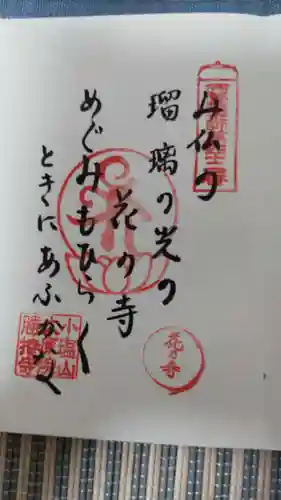 み仏の
瑠璃の光の
花の寺
めぐみもひらく
ときにあふかなく
花の寺
小塩山
勝持寺